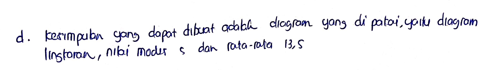 d. kesimpulan yang dapat dibuat adalah diagram yang di pakai, yaitu diagram
lingkaran, nilai modus 5 dan rata-rata 13,5